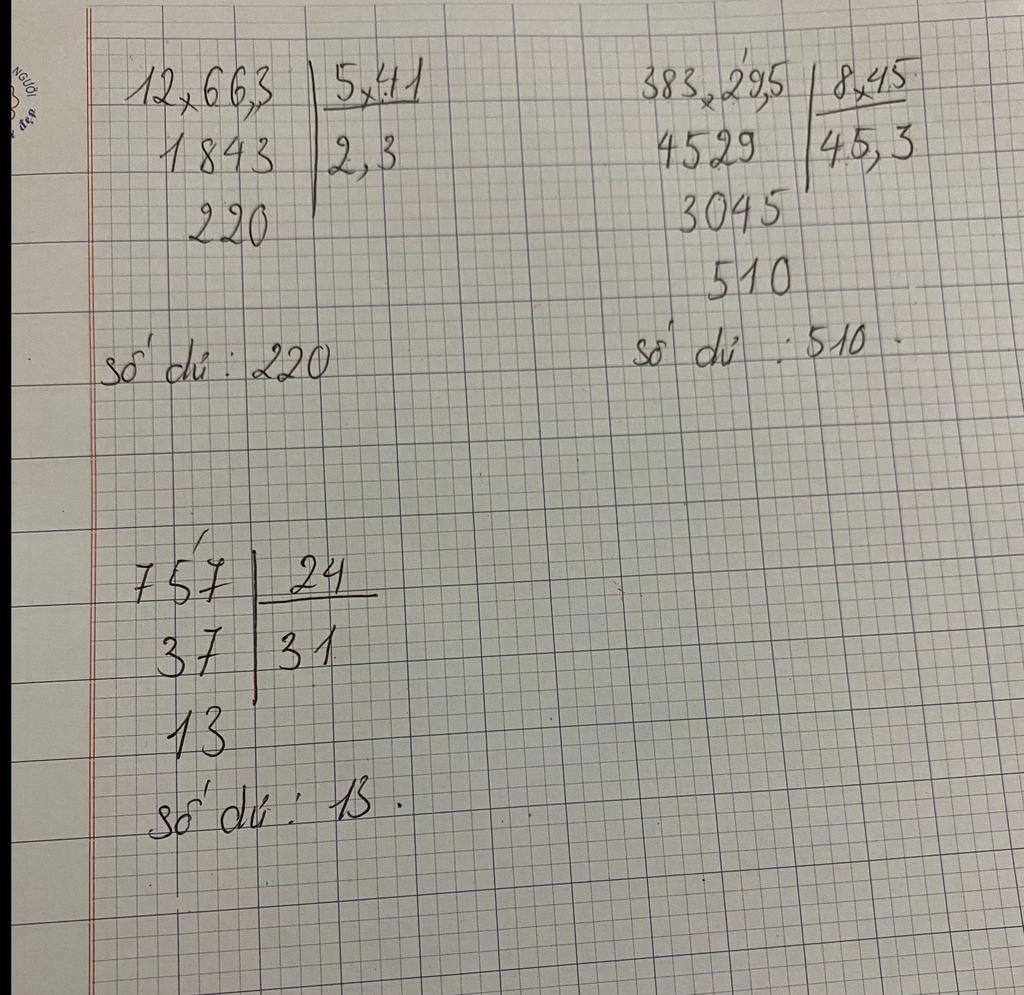 NGƯỜI
đẹp
12,66,3 | 5,41
1843 | 2,3
220
số dư : 220
383,29,5 | 8,45
4529 | 45,3
3045
510
số dư : 510.
757 | 24
37 | 31
13
số dư : 13.